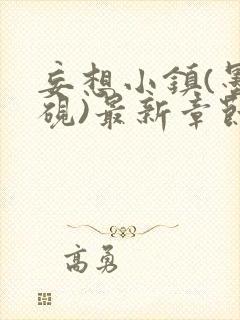 妄想小鎮(墨
硯)最新章節
高勇